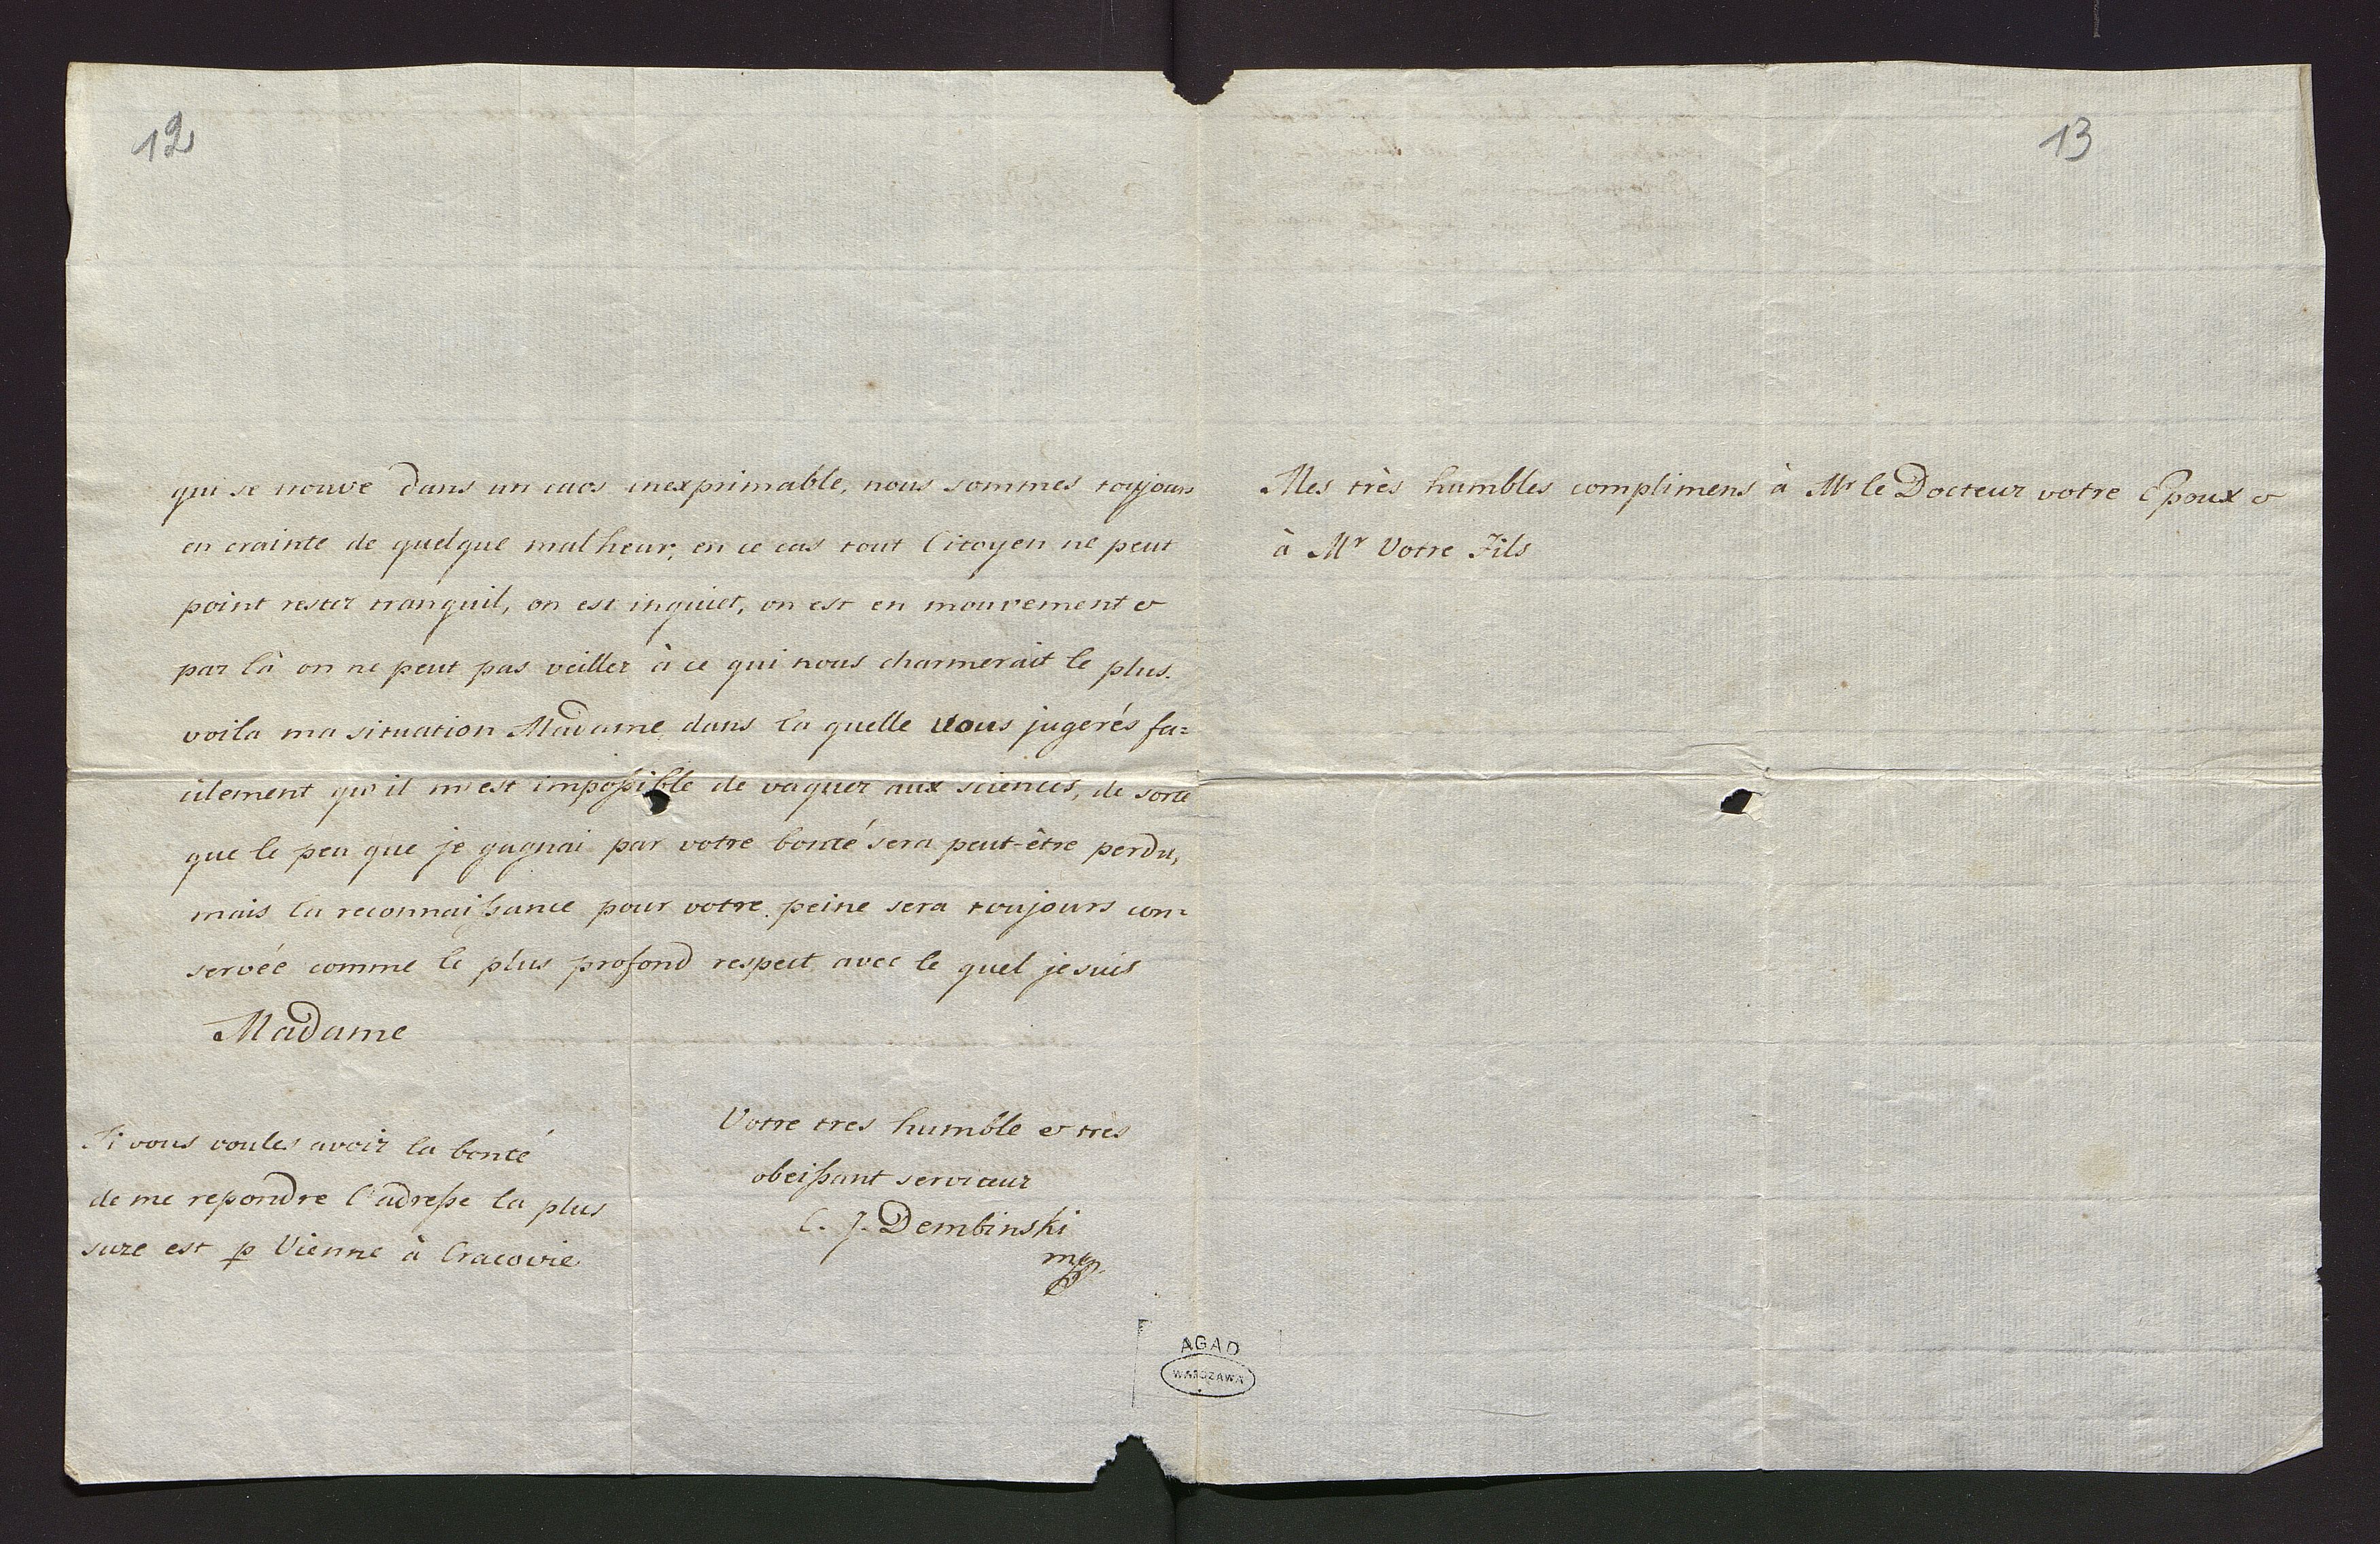 12
qui se trouve dans un caos inexprimable, nous sommes toujours
en crainte de quelque malheur, en ce cas tout Citoyen ne peut
point rester tranquil, on est inquiet, on est en mouvement &
par là on ne peut pas veiller à ce qui nous charmerait le plus.
voila ma situation Madame, dans la quelle vous jugerés fa=
cilement qu'il m'est impossible de vaquer aux sciences, de sorte
que le peu que je gagnai par votre bonté sera peut-être perdu,
mais la reconnaissance pour votre peine sera toujours con=
servée comme le plus profond respect avec le quel je suis
Madame
Votre tres humble & très
obeissant serviteur
C. J. Dembinski
mp
Si vous voules avoir la bonté
de me repondre l'adresse la plus
sure est p Vienne à Cracovie
13
Mes très humbles complimens à Mr le Docteur votre Epoux &
à Mr Votre Fils
AGAD
WARSZAWA